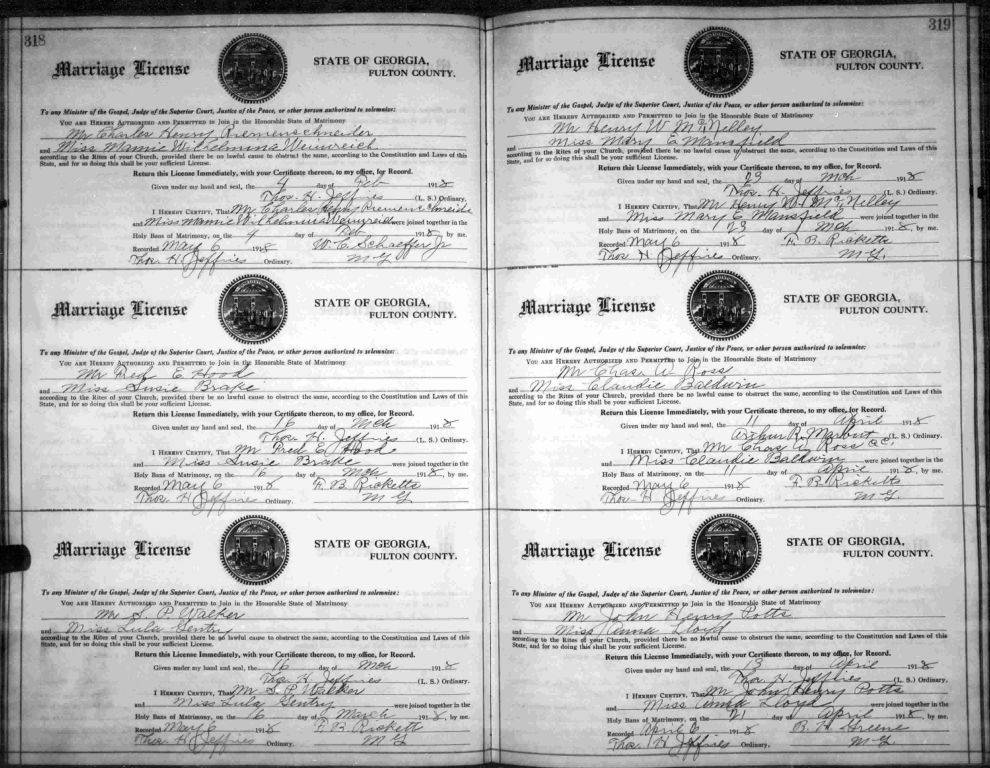 318
Marriage License
STATE OF GEORGIA,
FULTON COUNTY.
To any Minister of the Gospel, Judge of the Superior Court, Justice of the Peace, or other person authorized to solemnize:
YOU ARE HEREBY AUTHORIZED AND PERMITTED to Join in the Honorable State of Matrimony
Mr Charles Henry Riemenschneider
and Miss Mamie Wilhelmina Weinreich
according to the Rites of your Church, provided there be no lawful cause to obstruct the same, according to the Constitution and Laws of this
State, and for so doing this shall be your sufficient License.
Return this License Immediately, with your Certificate thereon, to my office, for Record.
Given under my hand and seal, the 4 day of Feb 1918
Thos. H. Jeffries (L. S.) Ordinary.
I HEREBY CERTIFY, That Mr Charles Henry Riemenschneider
and Miss Mamie Wilhelmina Weinreich were joined together in the
Holy Bans of Matrimony, on the 4 day of Feb 1918, by me.
Recorded May 6 1918 W. C. Schaeffer Jr
Thos H Jeffries Ordinary. M G
Marriage License
STATE OF GEORGIA,
FULTON COUNTY.
To any Minister of the Gospel, Judge of the Superior Court, Justice of the Peace, or other person authorized to solemnize:
YOU ARE HEREBY AUTHORIZED AND PERMITTED to Join in the Honorable State of Matrimony
Mr Fred E Hood
and Miss Susie Brake
according to the Rites of your Church, provided there be no lawful cause to obstruct the same, according to the Constitution and Laws of this
State, and for so doing this shall be your sufficient License.
Return this License Immediately, with your Certificate thereon, to my office, for Record.
Given under my hand and seal, the 16 day of Mch 1918
Thos. H. Jeffries (L. S.) Ordinary.
I HEREBY CERTIFY, That Mr Fred E Hood
and Miss Susie Brake were joined together in the
Holy Bans of Matrimony, on the 16 day of Mch 1918, by me.
Recorded May 6 1918 F. B. Ricketts
Thos H Jeffries Ordinary. M G
Marriage License
STATE OF GEORGIA,
FULTON COUNTY.
To any Minister of the Gospel, Judge of the Superior Court, Justice of the Peace, or other person authorized to solemnize:
YOU ARE HEREBY AUTHORIZED AND PERMITTED to Join in the Honorable State of Matrimony
Mr S P Walker
and Miss Lula Gentry
according to the Rites of your Church, provided there be no lawful cause to obstruct the same, according to the Constitution and Laws of this
State, and for so doing this shall be your sufficient License.
Return this License Immediately, with your Certificate thereon, to my office, for Record.
Given under my hand and seal, the 16 day of Mch 1918
Thos. H. Jeffries (L. S.) Ordinary.
I HEREBY CERTIFY, That Mr S. P. Walker
and Miss Lula Gentry were joined together in the
Holy Bans of Matrimony, on the 16 day of March 1918, by me.
Recorded May 6 1918 F. B. Rickett
Thos H Jeffries Ordinary. M G
319
Marriage License
STATE OF GEORGIA,
FULTON COUNTY.
To any Minister of the Gospel, Judge of the Superior Court, Justice of the Peace, or other person authorized to solemnize:
YOU ARE HEREBY AUTHORIZED AND PERMITTED to Join in the Honorable State of Matrimony
Mr Henry W McNelley
and Miss Mary E Mansfield
according to the Rites of your Church, provided there be no lawful cause to obstruct the same, according to the Constitution and Laws of this
State, and for so doing this shall be your sufficient License.
Return this License Immediately, with your Certificate thereon, to my office, for Record.
Given under my hand and seal, the 23 day of Mch 1918
Thos. H. Jeffries (L. S.) Ordinary.
I HEREBY CERTIFY, That Mr Henry W McNelley
and Miss Mary E Mansfield were joined together in the
Holy Bans of Matrimony, on the 23 day of Mch 1918, by me.
Recorded May 6 1918 F. B. Ricketts
Thos H Jeffries Ordinary. M. G.
Marriage License
STATE OF GEORGIA,
FULTON COUNTY.
To any Minister of the Gospel, Judge of the Superior Court, Justice of the Peace, or other person authorized to solemnize:
YOU ARE HEREBY AUTHORIZED AND PERMITTED to Join in the Honorable State of Matrimony
Mr Chas. W Ross
and Miss Claudie Baldwin
according to the Rites of your Church, provided there be no lawful cause to obstruct the same, according to the Constitution and Laws of this
State, and for so doing this shall be your sufficient License.
Return this License Immediately, with your Certificate thereon, to my office, for Record.
Given under my hand and seal, the 11 day of April 1918
Arthur R. Marbut (L. S.) Ordinary.
I HEREBY CERTIFY, That Mr Chas W Ross
and Miss Claudie Baldwin were joined together in the
Holy Bans of Matrimony, on the 11 day of April 1918, by me.
Recorded May 6 1918 F. B. Ricketts
Thos H Jeffries Ordinary. M G.
Marriage License
STATE OF GEORGIA,
FULTON COUNTY.
To any Minister of the Gospel, Judge of the Superior Court, Justice of the Peace, or other person authorized to solemnize:
YOU ARE HEREBY AUTHORIZED AND PERMITTED to Join in the Honorable State of Matrimony
Mr John Henry Potts
and Miss Anna Lloyd
according to the Rites of your Church, provided there be no lawful cause to obstruct the same, according to the Constitution and Laws of this
State, and for so doing this shall be your sufficient License.
Return this License Immediately, with your Certificate thereon, to my office, for Record.
Given under my hand and seal, the 13 day of April 1918
Thos. H. Jeffries (L. S.) Ordinary.
I HEREBY CERTIFY, That Mr John Henry Potts
and Miss Anna Lloyd were joined together in the
Holy Bans of Matrimony, on the 21 day of April 1918, by me.
Recorded April 6 1918 B. H. Greene
Thos. H Jeffries Ordinary. M G